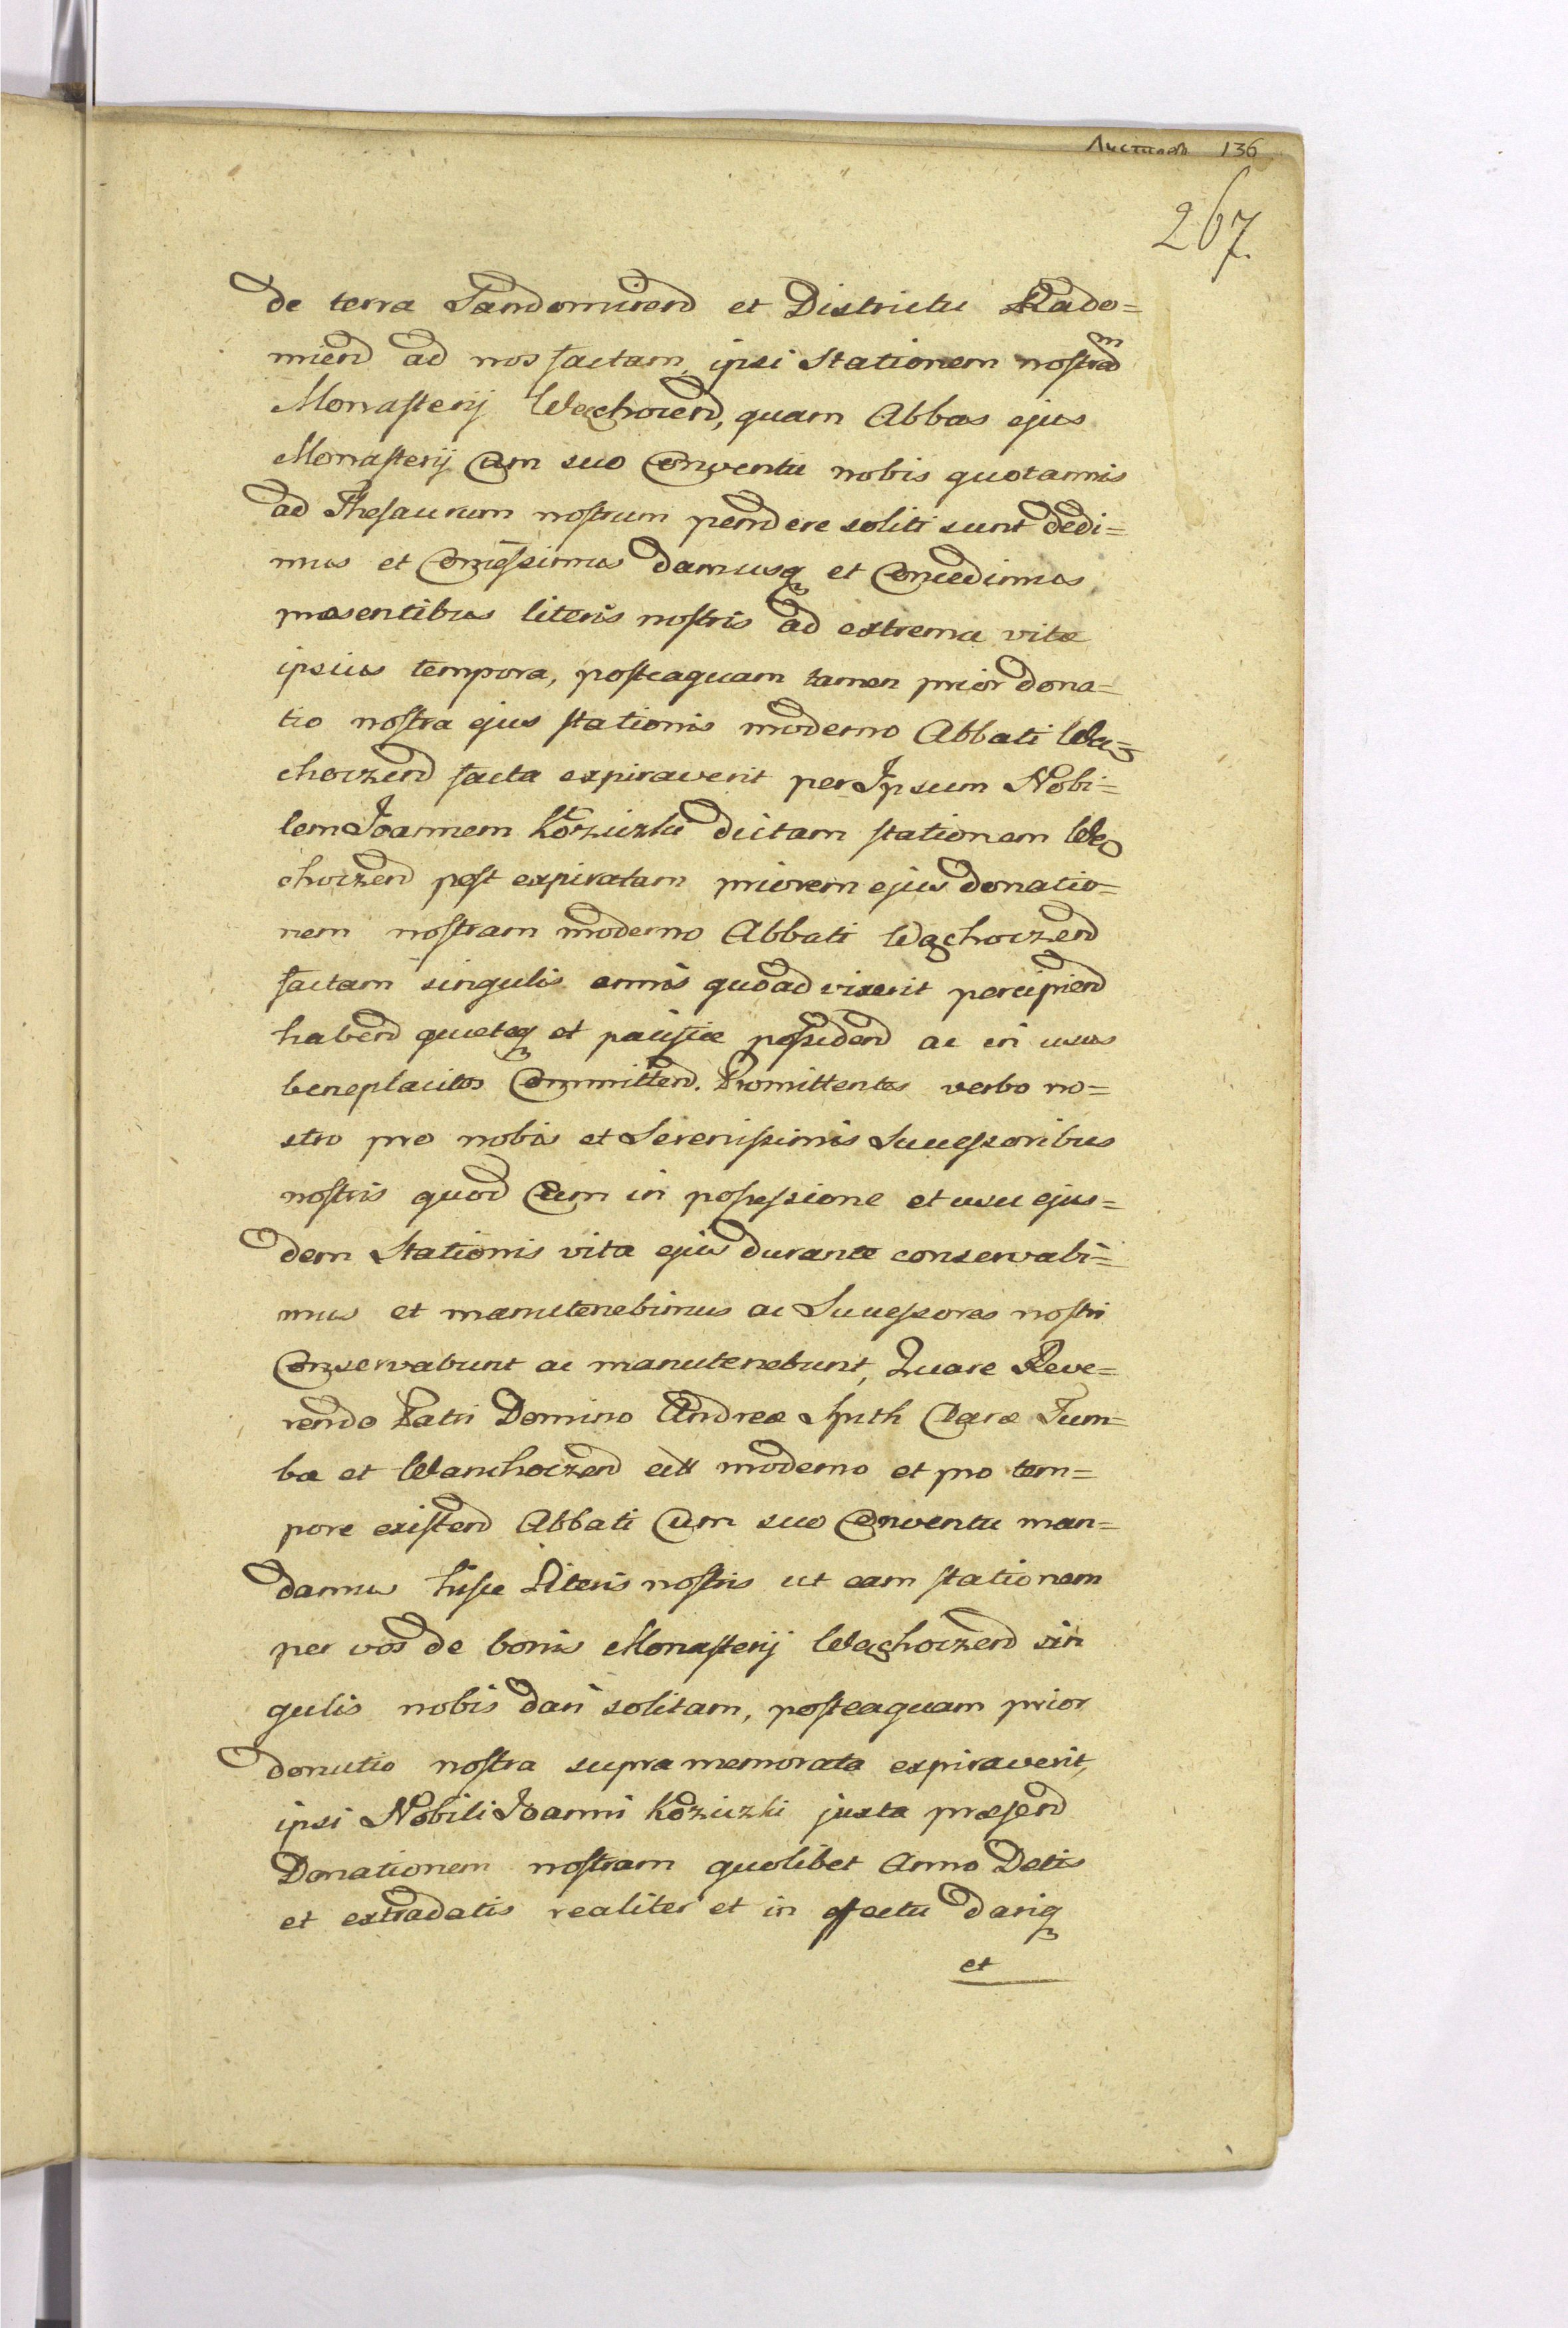 Листовъ 136
267.
de terra Sandomirend et Districtu Rado=
miend ad nos factam, ipsi Stationem nostram
Monasterij Wąchocend, quam Abbas ejus
Monasterij Cum suo Conventu nobis quotannis
ad Thesaurum nostrum pendere soliti sunt dedi=
mus et Concessimus damusq et Concedimus
præsentibus literis nostris ad extrema vitæ
ipsius tempora, posteaquam tamen prior dona=
tio nostra ejus stationis moderno Abbati Wą=
choczend facta expiraverit per Ipsum Nobi=
lem Joannem Kozuzki dictam stationem Wą
choczend post expiratam priorem ejus donatio=
nem nostram moderno Abbati Wąchoczend
factam singulis annis quoad vixerit percipiend
habend quieteq et pacifice possidend ac in usus
beneplacitos Committend. Promittentes verbo no=
stro pro nobis et Serenissimis Successoribus
nostris quod Eum in possessione et usu ejus=
dem Stationis vita ejus durante conservabi=
mus et manutenebimus ac Successores nostri
Conservabunt ac manutenebunt, Quare Reve=
rendo Patri Domino Andreæ Spith Claræ Tum=
bæ et Wanchoczend moderno et pro tem=
pore existend Abbati Cum suo Conventu man=
damus hisce Literis nostris ut eam stationem
per vos de bonis Monasterij Wąchoczend sin
gulis nobis dari solitam, posteaquam prior
donatio nostra supra memorata expiraverit,
ipsi Nobili Joanni Kozuzki juxta præsend
Donationem nostram quolibet Anno Detis
et extradatis realiter et in effectu dariq
et